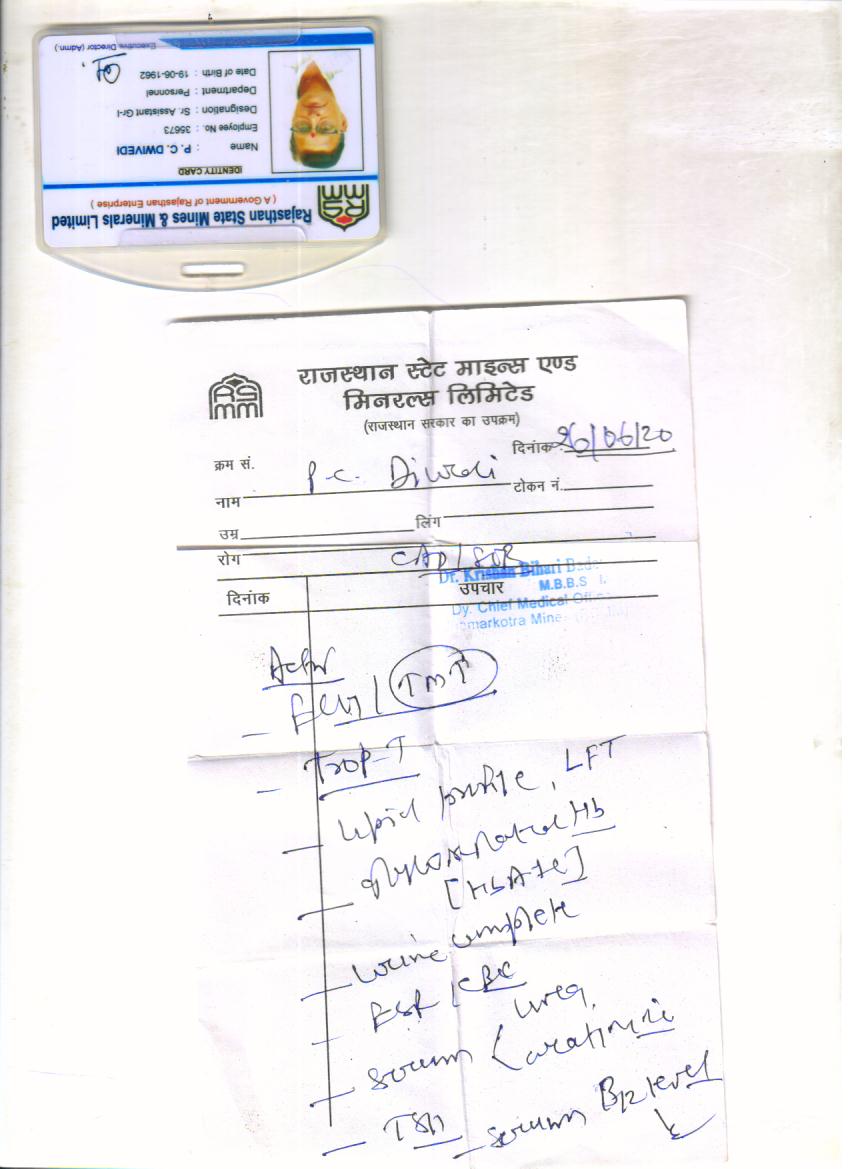 Rajasthan State Mines & Minerals Limited
( A Government of Rajasthan Enterprise )
RSMM
IDENTITY CARD
Name : P. C. DWIVEDI
Employee No. : 35673
Designation : Sr. Assistant Gr-I
Department : Personnel
Date of Birth : 19-06-1962
Executive Director (Admn.)
RSMM
राजस्थान स्टेट माइन्स एण्ड
मिनरल्स लिमिटेड
(राजस्थान सरकार का उपक्रम)
क्रम सं. दिनांक 26/06/20
नाम P.C. Diwedi टोकन नं.
उम्र लिंग
रोग CAD/SOB
Dr. Krishan Bihari
दिनांक उपचार M.B.B.S
Dy. Chief Medical
Mine
TMT
- Trop-T
- Lipid profile, LFT
- Hb
[HbA1c]
- urine complete
- ESR / CBC
- serum < urea,
creatinine
- TSH - serum B12 level